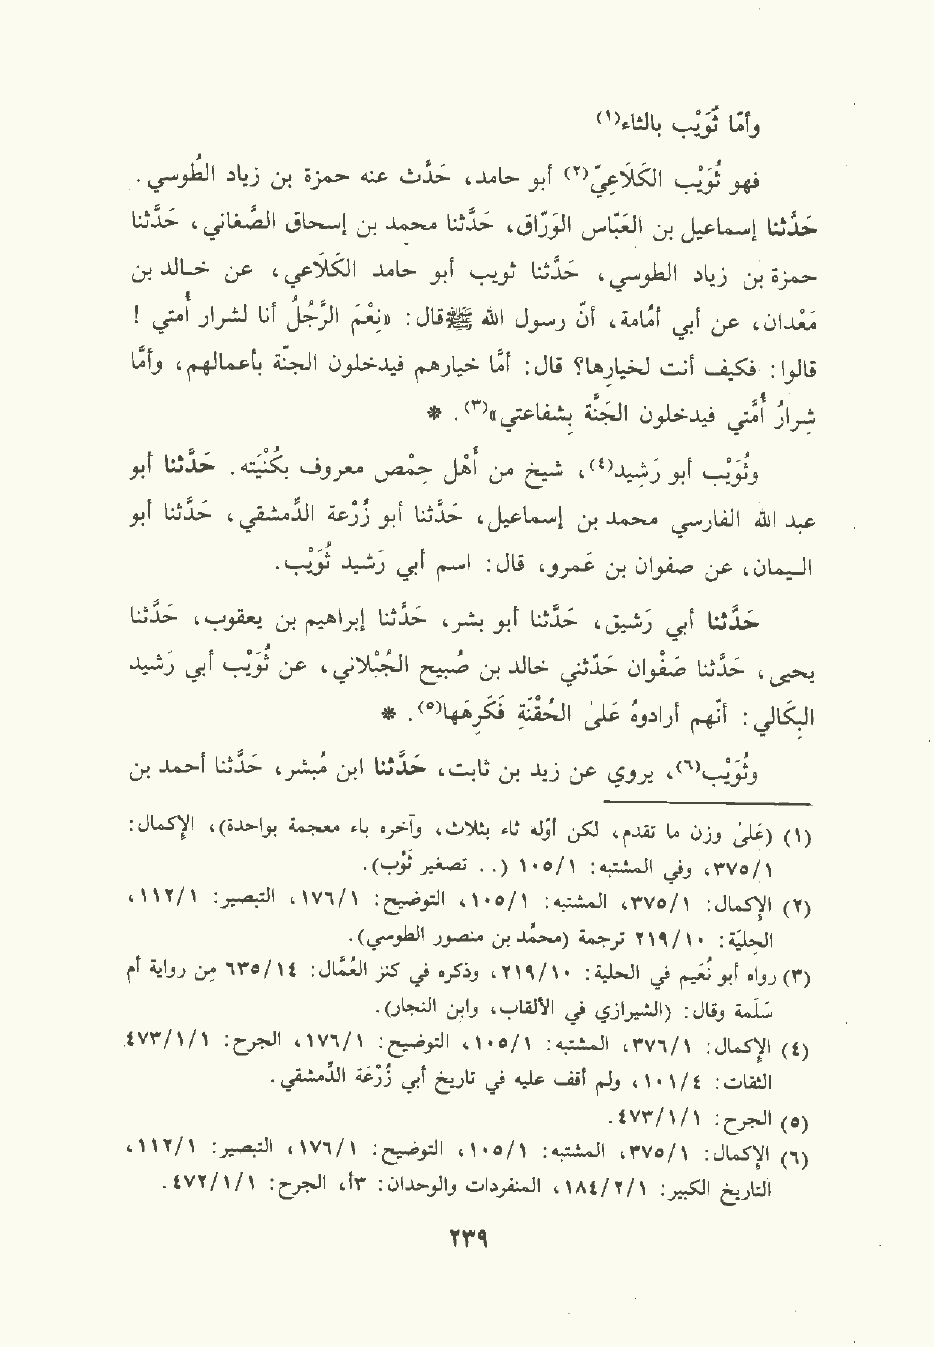 وأمّا ثُوَيْب بالثاء(١)
فهو ثُوَيْب الكَلاَعِيّ(٢) أبو حامد، حَدَّث عنه حمزة بن زياد الطُوسي.
حَدَّثنا إسماعيل بن العَبَّاس الوَرَّاق، حَدَّثنا محمد بن إسحاق الصَّغاني، حَدَّثنا
حمزة بن زياد الطوسي، حَدَّثنا ثويب أبو حامد الكَلاَعي، عن خالد بن
مَعْدان، عن أبي أُمامة، أنّ رسول الله ﷺ قال: «نِعْمَ الرَّجُلُ أنا لشرار أُمتي !
قالوا: فكيف أنت لخيارِها؟ قال: أمَّا خيارهم فيدخلون الجنّة بأعمالهم، وأمَّا
شِرارُ أُمَّتي فيدخلون الجَنَّة بِشفاعتي»(٣). *
وثُوَيْب أبو رَشِيد(٤)، شيخ من أهْل حِمْص معروف بكُنْيَته. حَدَّثنا أبو
عبد الله الفارسي محمد بن إسماعيل، حَدَّثنا أبو زُرْعة الدِّمشقي، حَدَّثنا أبو
اليمان، عن صفوان بن عَمرو، قال: اسم أبي رَشيد ثُوَيْب.
حَدَّثنا أبي رَشيق، حَدَّثنا أبو بشر، حَدَّثنا إبراهيم بن يعقوب، حَدَّثنا
يحيى، حَدَّثنا صَفْوان حَدَّثني خالد بن صُبيح الجُبْلاني، عن ثُوَيْب أبي رَشيد
البِكَالي: أنَّهم أرادوهُ عَلىٰ الحُقْنَةِ فَكَرِهَها(٥). *
وثُوَيْب(٦)، يروي عن زيد بن ثابت، حَدَّثنا ابن مُبشر، حَدَّثنا أحمد بن
(١) (عَلَىٰ وزن ما تقدم، لكن أوّله ثاء بثلاث، وآخره باء معجمة بواحدة)، الإكمال:
٣٧٥/١، وفي المشتبه: ١٠٥/١ (. . تصغير ثَوْب).
(٢) الإكمال: ٣٧٥/١، المشتبه: ١٠٥/١، التوضيح: ١٧٦/١، التبصير: ١١٢/١،
الحلية: ٢١٩/١٠ ترجمة (محمّد بن منصور الطوسي).
(٣) رواه أبو نُعَيم في الحلية: ٢١٩/١٠، وذكره في كنز العُمَّال: ٦٣٥/١٤ مِن رواية أم
سَلَمة وقال: (الشيرازي في الألقاب، وابن النجار).
(٤) الإكمال: ٣٧٦/١، المشتبه: ١٠٥/١، التوضيح: ١٧٦/١، الجرح: ٤٧٣/١/١
الثقات: ١٠١/٤، ولم أقف عليه في تاريخ أبي زُرْعَة الدِّمشقي.
(٥) الجرح: ٤٧٣/١/١.
(٦) الإكمال: ٣٧٥/١، المشتبه: ١٠٥/١، التوضيح: ١٧٦/١، التبصير: ١١٢/١،
التاريخ الكبير: ١٨٤/٢/١، المنفردات والوحدان: ٣أ، الجرح: ٤٧٢/١/١.
٢٣٩